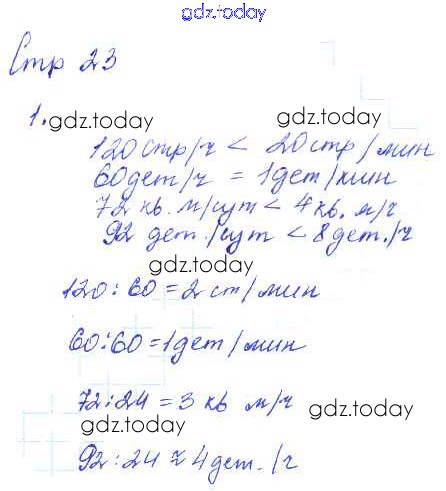 gdz.today
Стр 23
1. gdz.today gdz.today
120 стр/ч < 20 стр/мин
60 дет/ч = 1 дет/мин
72 кв. м/сут < 4 кв. м/ч
92 дет./сут < 8 дет./ч
gdz.today
120 : 60 = 2 ст/мин
60 : 60 = 1 дет/мин
gdz.today
72 : 24 = 3 кв м/ч
gdz.today
92 : 24 ≈ 4 дет./ч